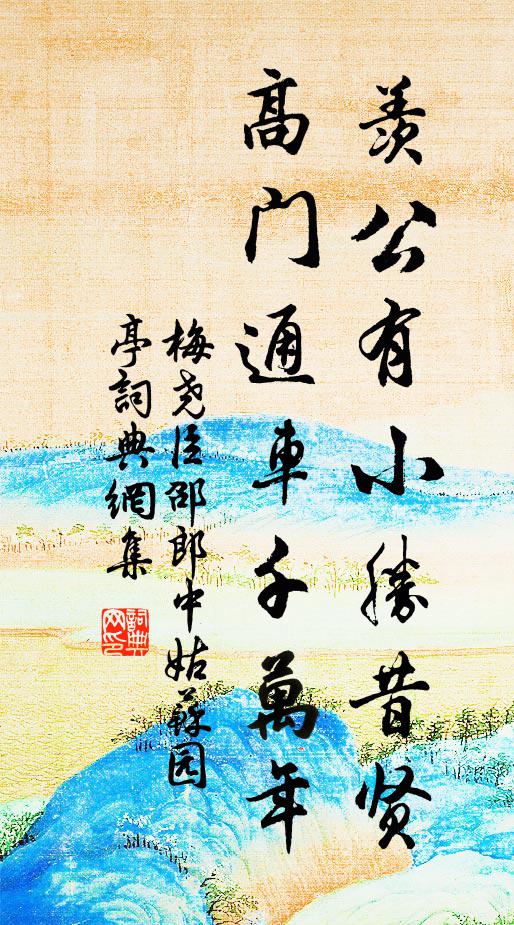 羨公有小勝昔贤
高门通車千萬年
梅尧臣邵郎中姑蘇园
亭詞典網集
詞典网印